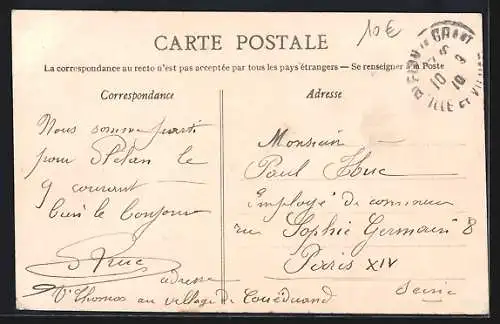 10€
CARTE POSTALE
La correspondance au recto n'est pas acceptée par tous les pays étrangers — Se renseigner à la Poste
Correspondance
Adresse
Nous somme parti
pour St élan le
9 courant
bien le bonjour
Monsieur
Paul Huc
Employé de commerce
rue Sophie Germain 8
Paris XIV
Seine
adresse
Vve Thomas au village de
10 9
10
ILLE ET VILAINE